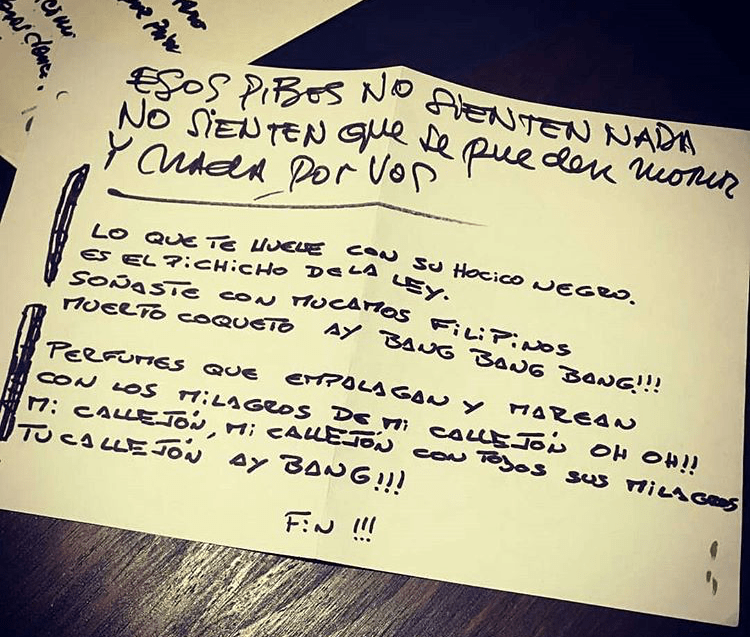 ESOS PIBES NO SIENTEN NADA
NO SIENTEN que se pueden MORIR
Y CHACA POR VOS
LO QUE TE HUELE CON SU HOCICO NEGRO.
ES EL PICHICHO DE LA LEY.
SOÑASTE CON MUCAMOS FILIPINOS
MUERTO COQUETO AY BANG BANG BANG!!!
PERFUMES QUE EMPALAGAN Y MAREAN
CON LOS MILAGROS DE MI CALLEJÓN OH OH!!
MI CALLEJÓN, MI CALLEJÓN CON TODOS SUS MILAGROS
TU CALLEJÓN AY BANG!!!
FIN !!!